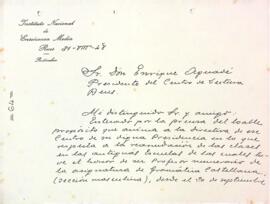 Instituto Nacional
de
Enseñanza Media
Reus 21-VIII-48
Particular
Sr. Don Enrique Aguadé
Presidente del Centro de Lectura
Reus.
Mi distinguido Sr. y amigo:
Enterado por la prensa del bello
propósito que anima a la directiva de ese
Centro de su digna Presidencia en lo que
respecta a la reanudación de las clases
en las antiguas Escuelas de las cuales tu-
ve el honor de ser Profesor numerario de
la asignatura de Gramática Castellana
(sección masculina), desde el 30 de septiembre